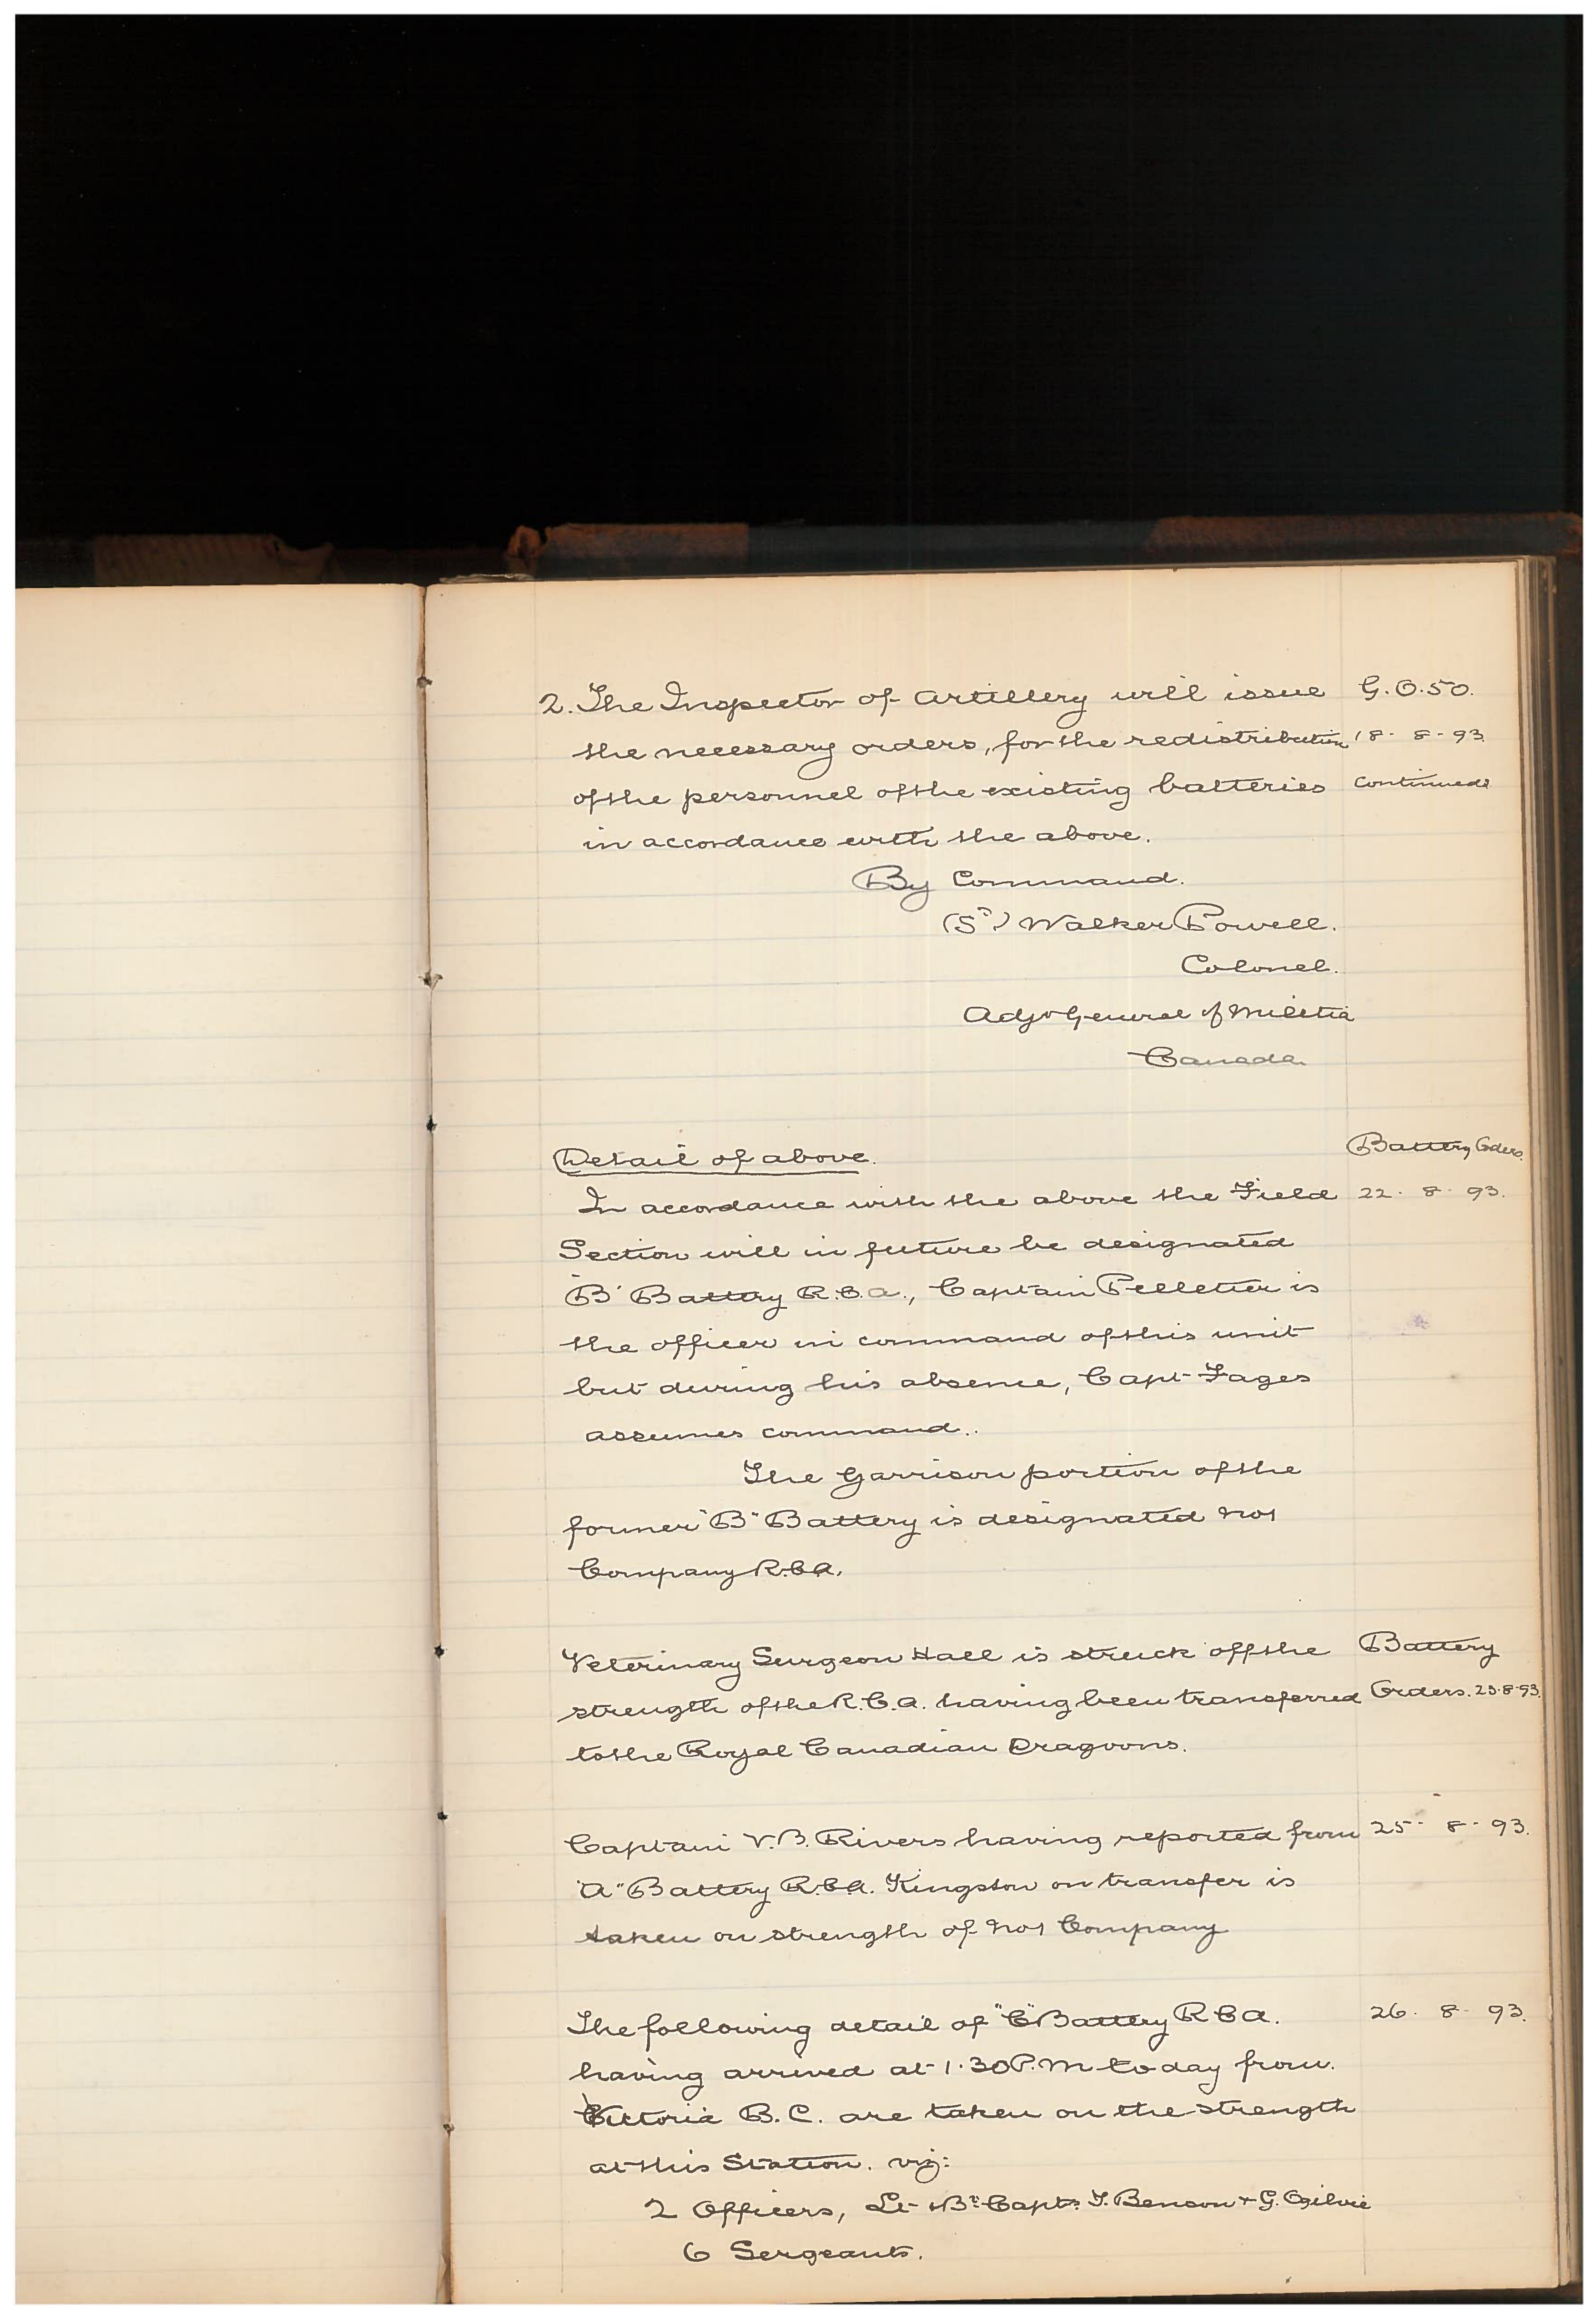 2. The Inspector of Artillery will issue G.O. 50.
the necessary orders, for the redistribution 18 - 8 - 93
of the personnel of the existing batteries continued
in accordance with the above.
By Command.
(Sd) Walker Powell.
Colonel.
Adjt General of Militia
Canada
Detail of above. Battery Orders.
In accordance with the above the Field 22 - 8 - 93.
Section will in future be designated
"B" Battery R.C.A., Captain Pelletier is
the officer in command of this unit
but during his absence, Capt Fages
assumes command..
The Garrison portion of the
former "B" Battery is designated No 1
Company R.C.A.
Veterinary Surgeon Hall is struck off the Battery
strength of the R.C.A. having been transferred Orders. 23-8-93.
to the Royal Canadian Dragoons.
Captain V.B. Rivers having reported from 25 - 8 - 93.
"A" Battery R.C.A. Kingston on transfer is
taken on strength of No 1 Company
The following detail of "C" Battery R C A. 26 - 8 - 93.
having arrived at 1.30 P.M to day from.
Victoria B.C. are taken on the strength
at this Station. viz:
2 Officers, Lt & Bt Capts T. Benson & G. Ogilvie
6 Sergeants.